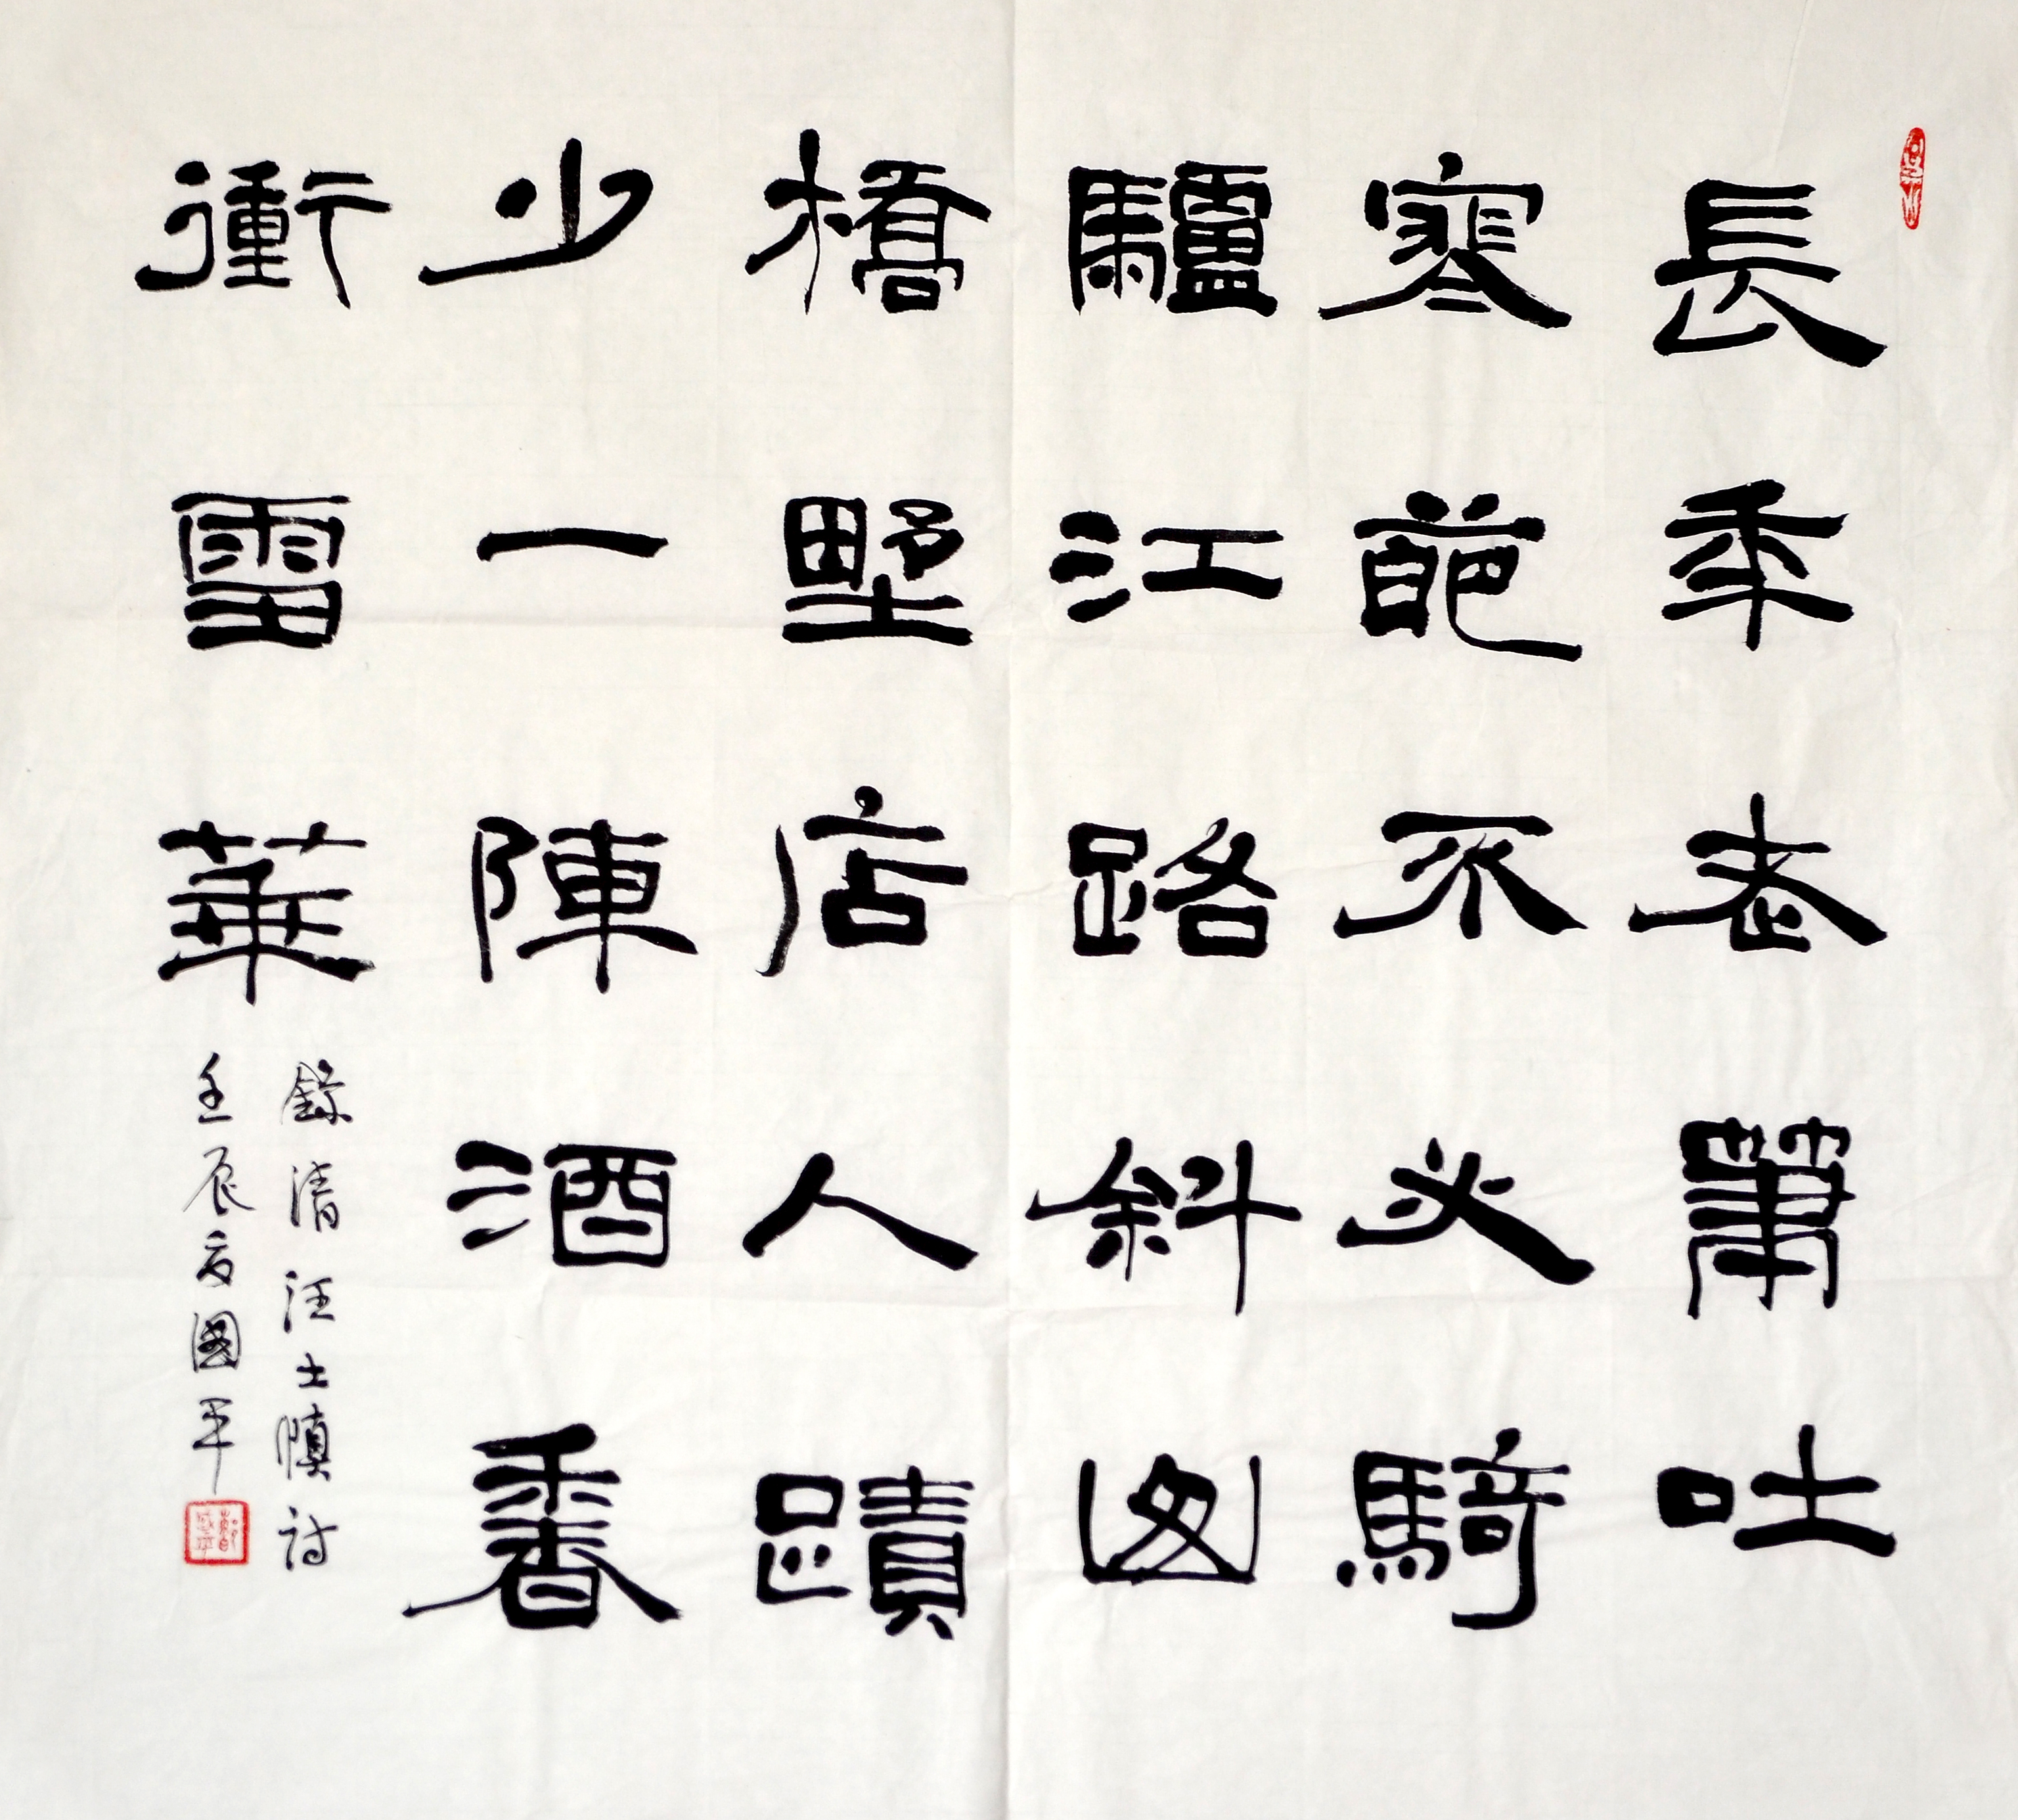 長年老筆吐
寒葩不必騎
驢江路斜
橋野店人蹟
少一陣酒香
衝雪華
錄清汪士慎詩
壬辰夏國平